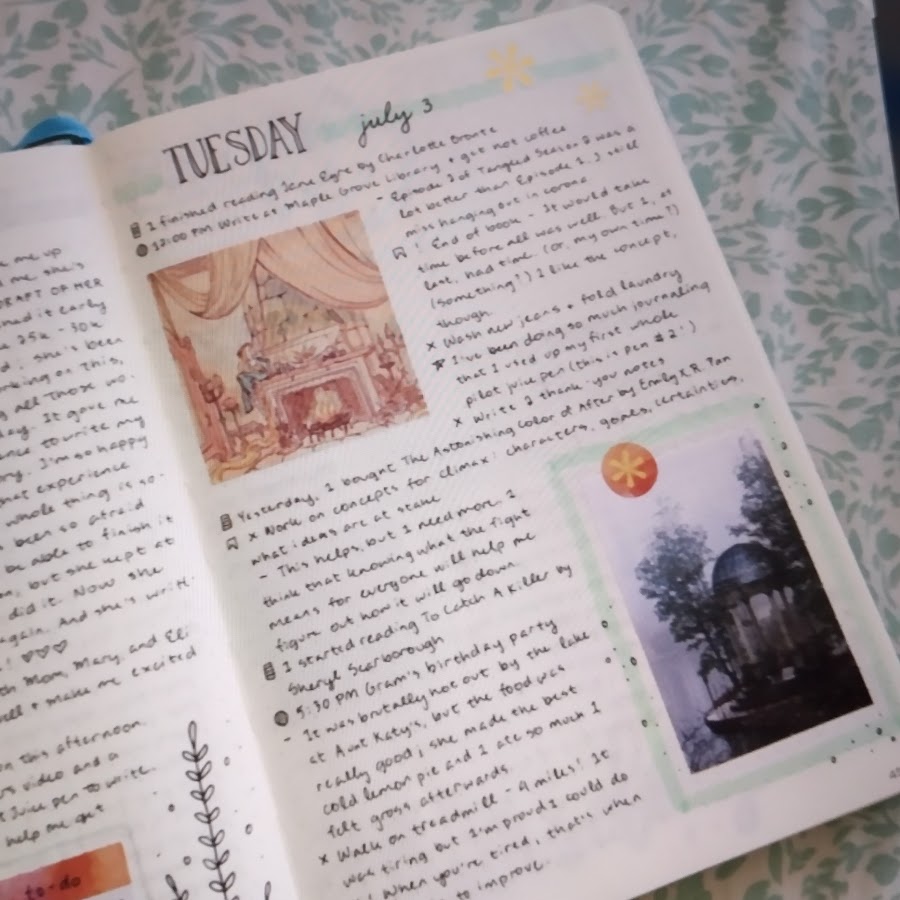 me up
me she's
DRAFT OF HER
it early
25k - 30k
she's been
working on this,
all those wo
day. It gave me
to write my
I'm so happy
that experience
whole thing is so
been so afraid
be able to finish it
but she kept at
did it. Now she
again. And she's writ
! ♡♡♡
Mom, Mary, and Eli
+ make me excited
on this afternoon.
video and a
Juice pen to write.
help me get
to-do
TUESDAY july 3
I finished reading Jane Eyre by Charlotte Bronte
12:00 PM Write at Maple Grove Library + get hot coffee
- Episode 2 of Tangled Season 2 was a
lot better than Episode 1. I still
miss hanging out in corona
! End of book - It would take
time before all was well. But I, at
last, had time. (or, my own time?)
(something?) I like the concept,
though.
x Wash new jeans + fold laundry
I've been doing so much journaling
that I used up my first whole
pilot juice pen (this is pen #2!)
x Write 2 thank-you notes
Yesterday, I bought The Astonishing Color of After by Emily X.R. Pan
x Work on concepts for climax: characters, games, certainties,
what ideas are at stake
- This helps, but I need more. I
think that knowing what the fight
means for everyone will help me
figure out how it will go down.
I started reading To Catch A Killer by
Sheryl Scarborough
5:30 PM Gram's birthday party
- It was brutally hot out by the lake
at Aunt Katy's, but the food was
really good; she made the best
cold lemon pie and I ate so much I
felt gross afterwards.
x Walk on treadmill - 4 miles! It
was tiring but I'm proud I could do
! When you're tired, that's when
to improve.